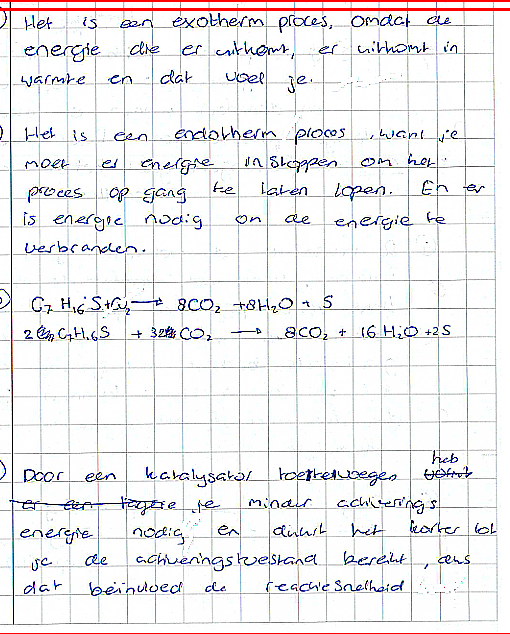 Het is een exotherm proces, omdat de
energie die er uitkomt, er uitkomt in
warmte en dat voel je.
Het is een endotherm proces, want je
moet er energie in stoppen om het
proces op gang te laten lopen. En er
is energie nodig om de energie te
verbranden.
C7 H16 S + O2 → 8CO2 + 8H2O + S
2 C7H16S + 32 CO2 → 8CO2 + 16 H2O + 2S
heb
Door een katalysator toe te voegen
er een lagere je minder activerings
energie nodig en duurt het korter tot
je de activeringstoestand bereikt, dus
dat beïnvloed de reactiesnelheid